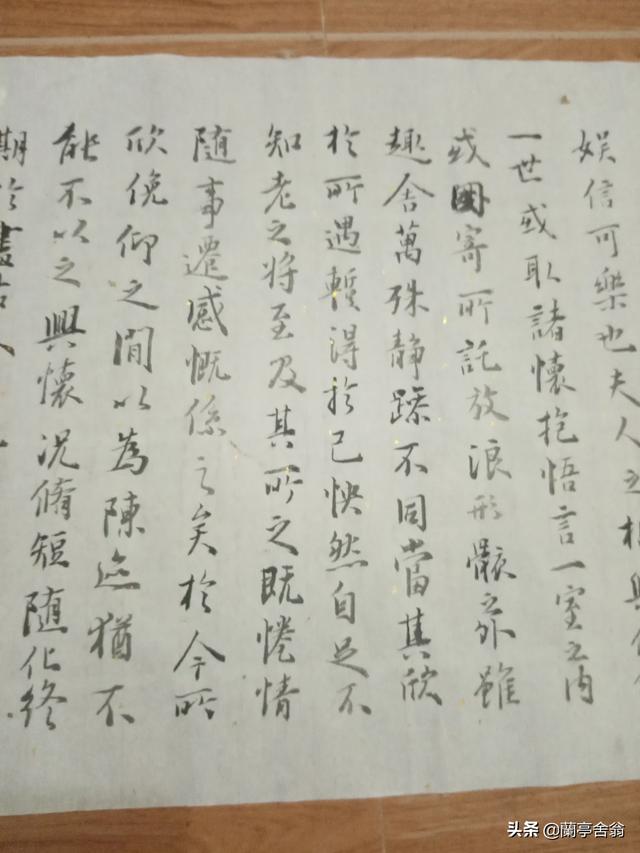 娱信可樂也夫人之相與
一世或取諸懷抱悟言一室之内
或因寄所託放浪形骸之外雖
趣舍萬殊静躁不同當其欣
於所遇暫得於己怏然自足不
知老之将至及其所之既惓情
随事遷感慨係之矣於今所
欣俛仰之間以為陳迹猶不
能不以之興懷況脩短随化終
期於盡古人
头条 @蘭亭舍翁